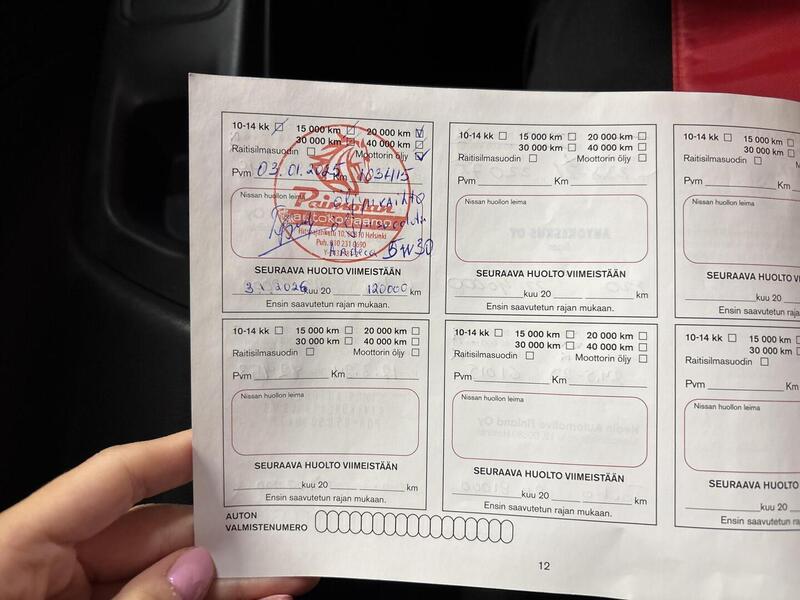 10-14 kk 15 000 km 20 000 km
30 000 km 40 000 km
Raitisilmasuodin Moottorin öljy
Pvm 03.01.2025 Km 103415
Nissan huollon leima
Painolan
autokorjaamo
Helsinki
Puh. 010 231 0690
5W30
SEURAAVA HUOLTO VIIMEISTÄÄN
3.1.2026 kuu 20 120000 km
Ensin saavutetun rajan mukaan.
10-14 kk 15 000 km 20 000 km
30 000 km 40 000 km
Raitisilmasuodin Moottorin öljy
Pvm Km
Nissan huollon leima
SEURAAVA HUOLTO VIIMEISTÄÄN
kuu 20 km
Ensin saavutetun rajan mukaan.
10-14 kk 15 000 km
30 000 km
Raitisilmasuodin
Pvm Km
Nissan huollon leima
SEURAAVA HUOLTO
kuu 20
Ensin saavutetun rajan mukaan.
10-14 kk 15 000 km 20 000 km
30 000 km 40 000 km
Raitisilmasuodin Moottorin öljy
Pvm Km
Nissan huollon leima
SEURAAVA HUOLTO VIIMEISTÄÄN
kuu 20 km
Ensin saavutetun rajan mukaan.
10-14 kk 15 000 km 20 000 km
30 000 km 40 000 km
Raitisilmasuodin Moottorin öljy
Pvm Km
Nissan huollon leima
SEURAAVA HUOLTO VIIMEISTÄÄN
kuu 20 km
Ensin saavutetun rajan mukaan.
10-14 kk 15 000
30 000
Raitisilmasuodin
Pvm Km
Nissan huollon leima
SEURAAVA HUOLTO
kuu 20
Ensin saavutetun rajan
AUTON
VALMISTENUMERO
12